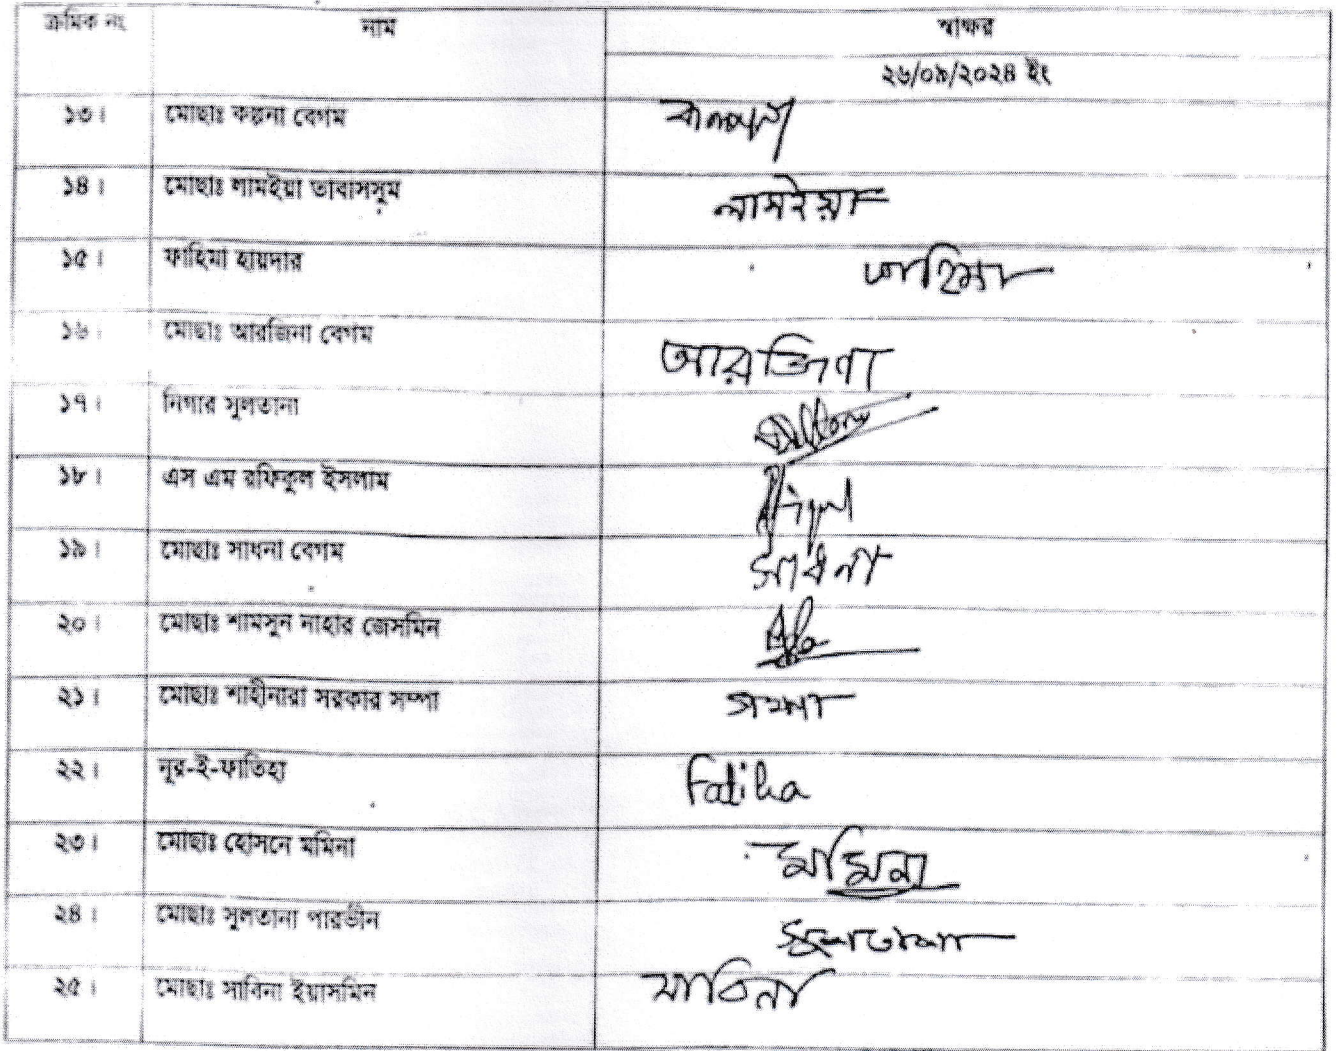 ক্রমিক নং নাম স্বাক্ষর
২৬/০৯/২০২৪ ইং
১৩। মোছাঃ কল্পনা বেগম কল্পনা
১৪। মোছাঃ লামইয়া তাবাসসুম লামইয়া
১৫। ফাহিমা হায়দার ফাহিমা
১৬। মোছাঃ আরজিনা বেগম আরজিনা
১৭। নিগার সুলতানা
১৮। এস এম রফিকুল ইসলাম
১৯। মোছাঃ সাধনা বেগম সাধনা
২০। মোছাঃ শামসুন নাহার জেসমিন
২১। মোছাঃ শাহীনারা সরকার সম্পা সম্পা
২২। নূর-ই-ফাতিহা Fatiha
২৩। মোছাঃ হোসনে মমিনা মমিনা
২৪। মোছাঃ সুলতানা পারভীন সুলতানা
২৫। মোছাঃ সাবিনা ইয়াসমিন সাবিনা